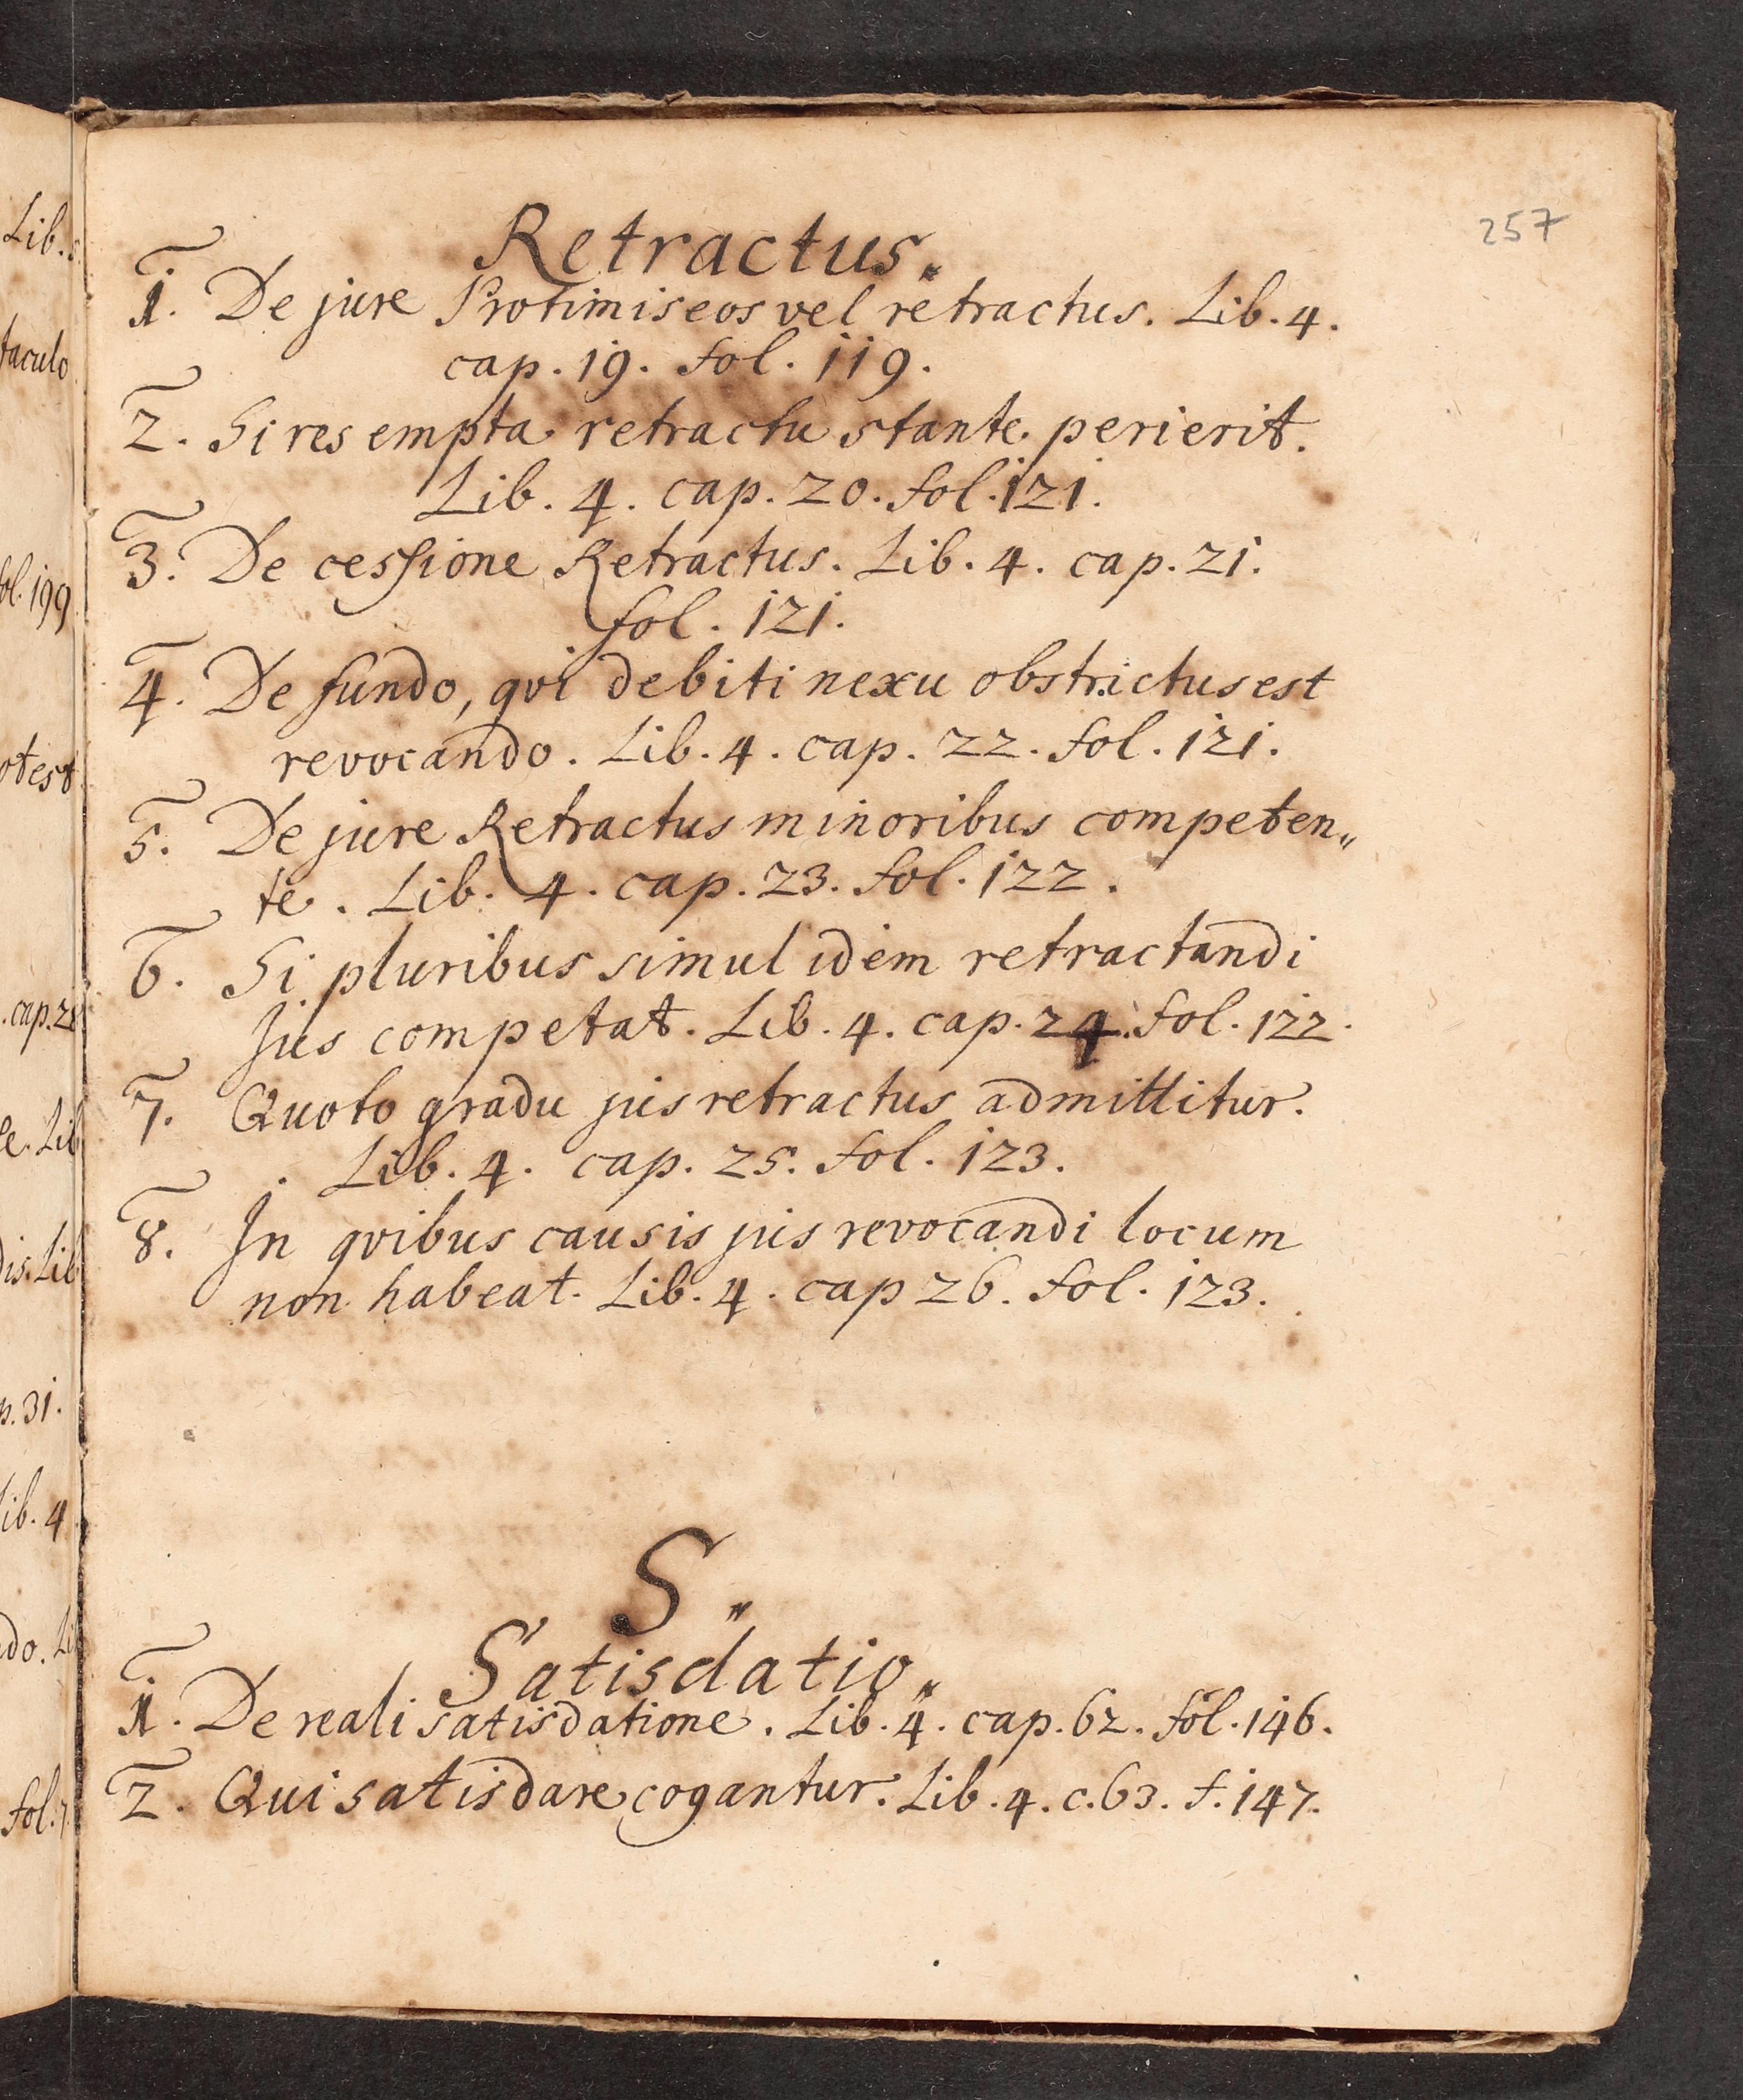 257
Retractus.
1. De jure Protimiseos vel retractus. Lib. 4.
cap. 19. fol. 119.
2. Si res empta retractu stante perierit.
Lib. 4. cap. 20. fol. 121.
3. De cessione Retractus. Lib. 4. cap. 21.
fol. 121.
4. De fundo, qvi debiti nexu obstrictus est
revocando. Lib. 4. cap. 22. fol. 121.
5. De jure Retractus minoribus competen„
te. Lib. 4. cap. 23. fol. 122.
6. Si pluribus simul idem retractandi
jus competat. Lib. 4. cap. 24. fol. 122.
7. Quoto gradu jus retractus admittitur.
Lib. 4. cap. 25. fol. 123.
8. In qvibus causis jus revocandi locum
non habeat. Lib. 4. cap 26. fol. 123.
S„
Satisdatio„
1. De reali satisdatione. Lib. 4. cap. 62. fol. 146.
2. Qui satisdare cogantur. Lib. 4. c. 63. f. 147.